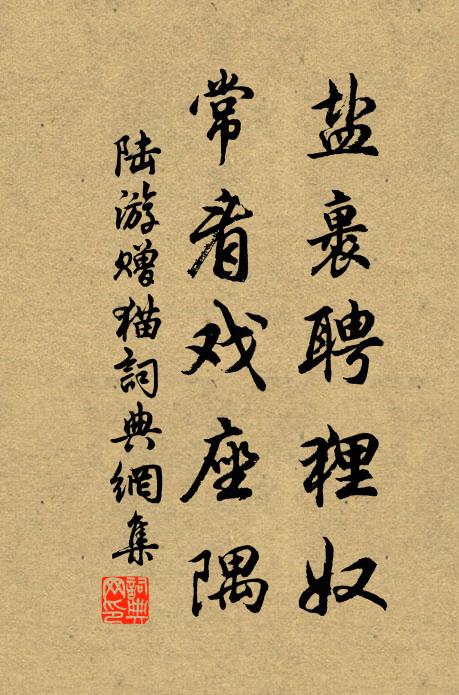 盐裹聘狸奴
常看戏座隅
陆游赠猫詞典網集
詞典网印